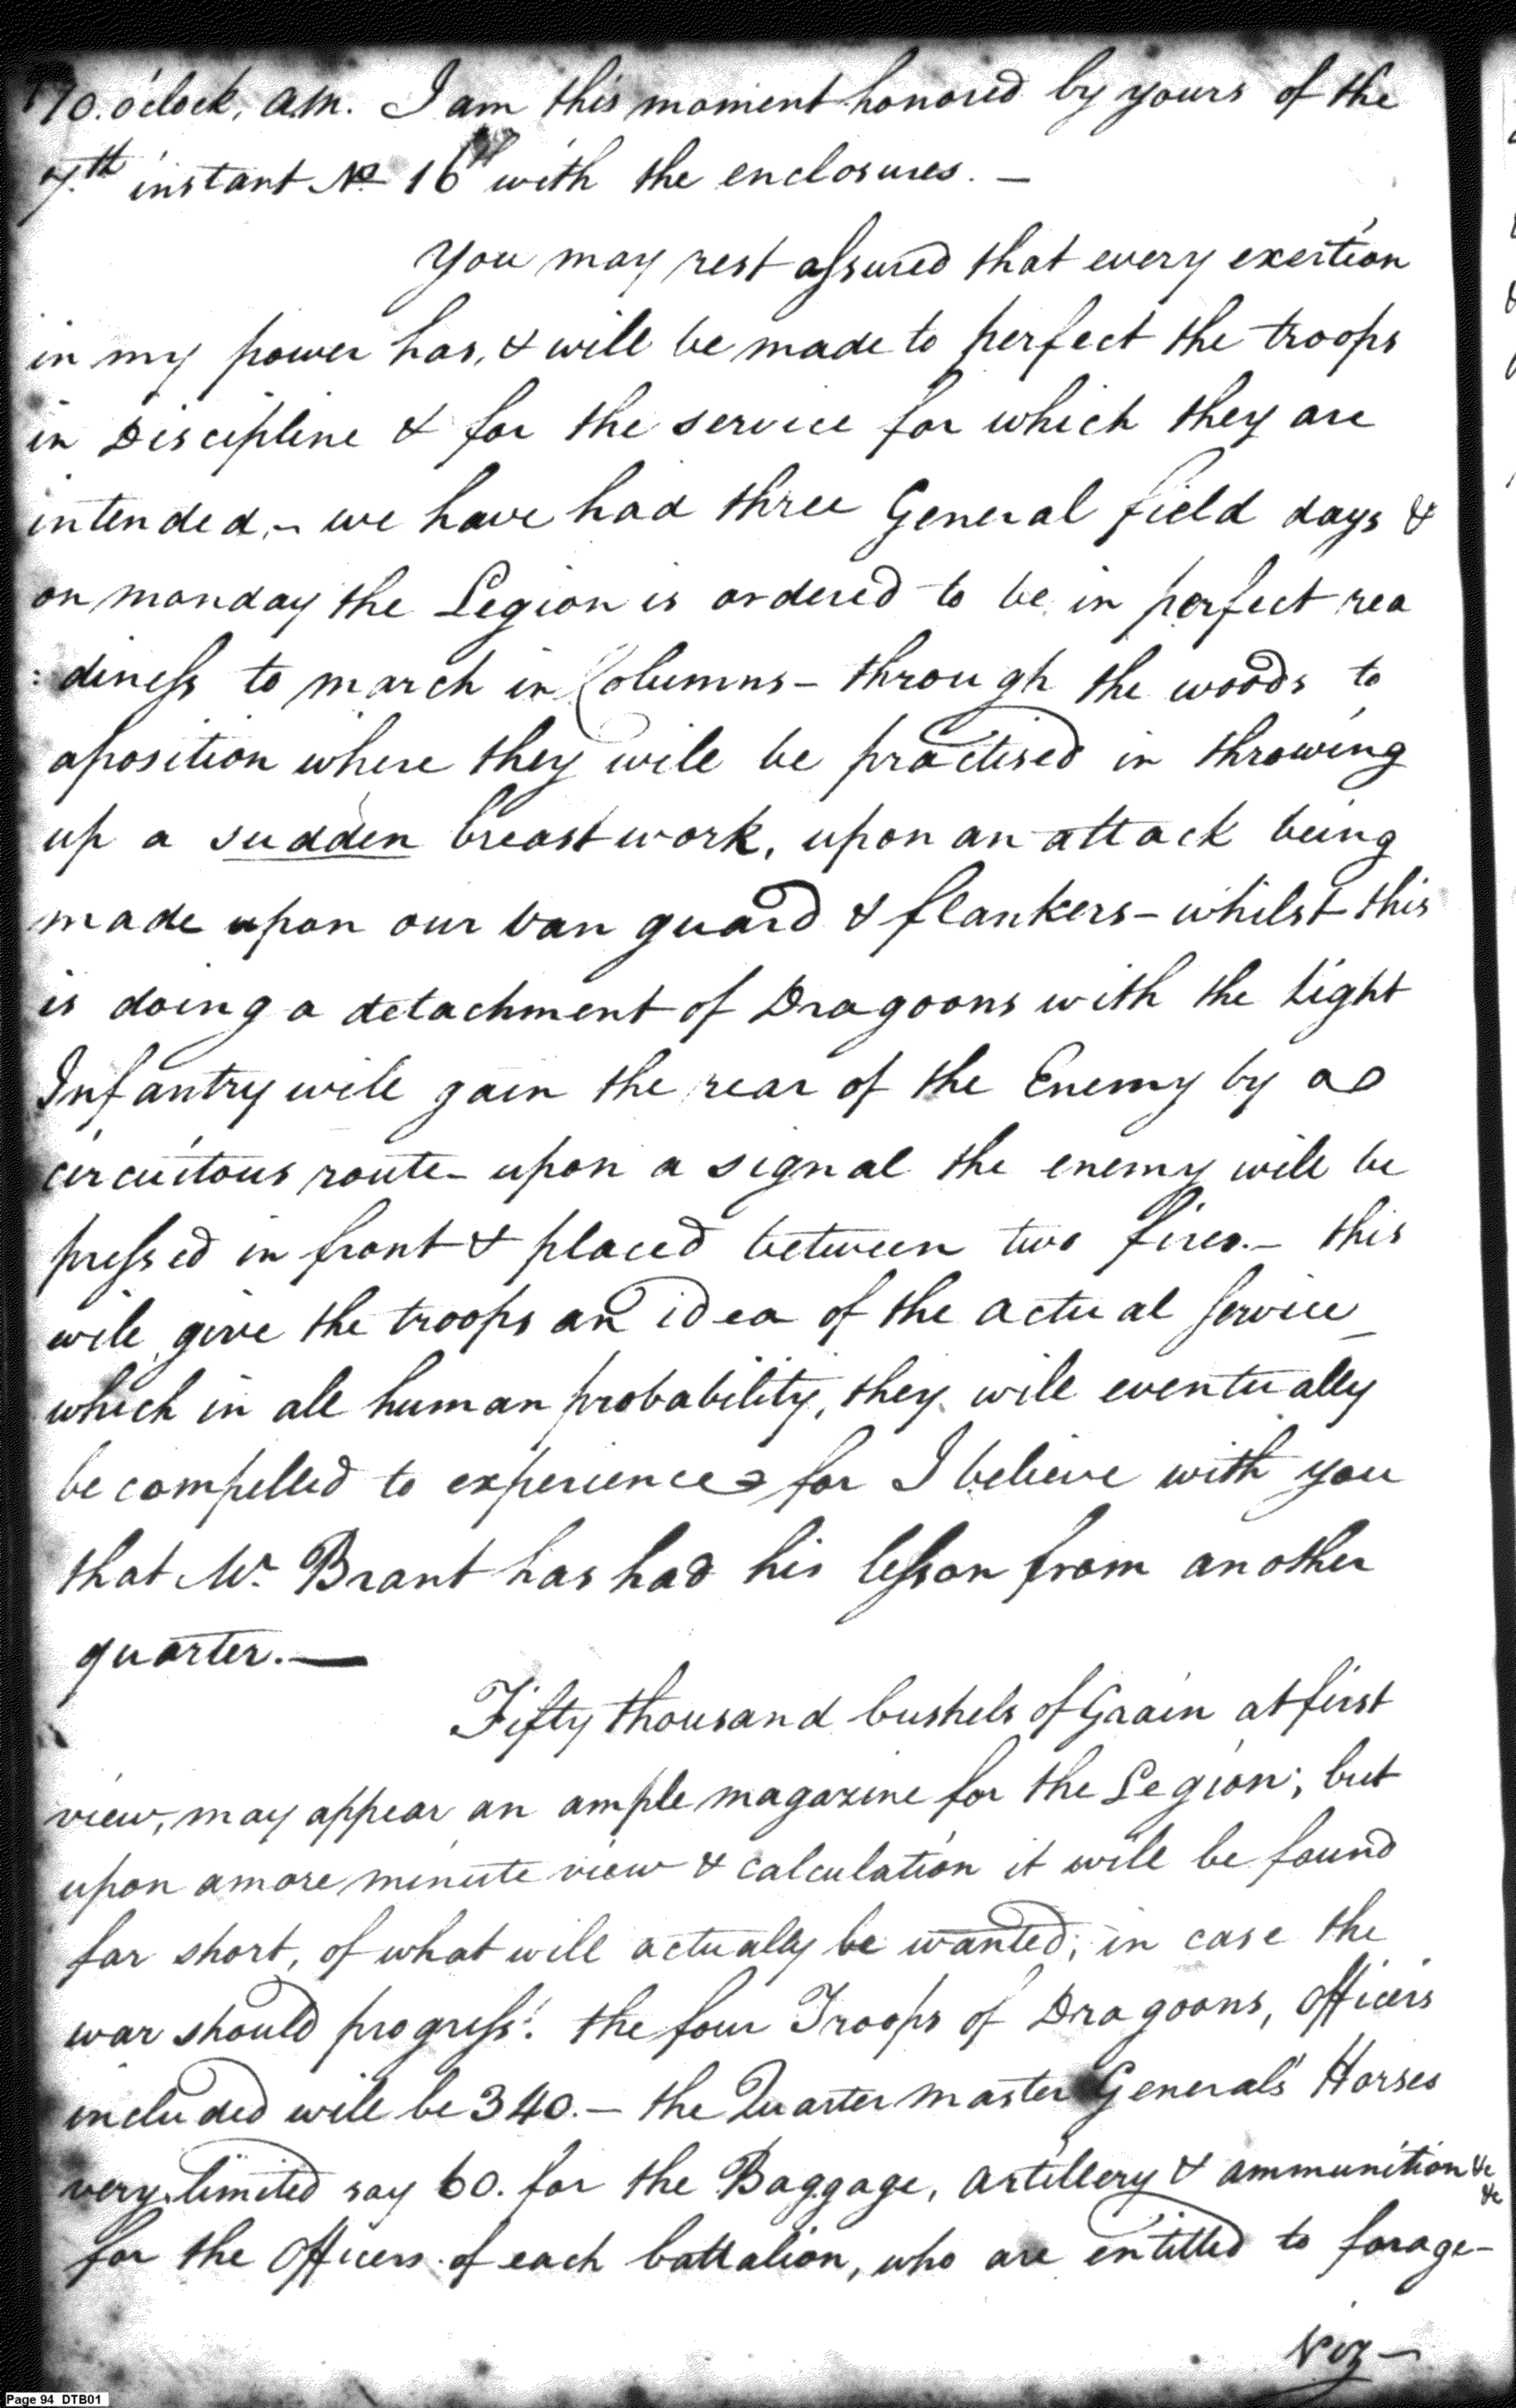 10. o'clock, a.m. I am this moment honored by yours of the
7.th instant No. 16th with the enclosures. —
You may rest assured that every exertion
in my power has, & will be made to perfect the troops
in Discipline & for the service for which they are
intended, - we have had three General field days &
on monday the Legion is ordered to be in perfect rea
: diness to march in Columns - through the woods to
aposition where they will be practised in throwing
up a sudden breast work, upon an attack being
made upon our van guard & flankers - whilst this
is doing a detachment of Dragoons with the Light
Infantry will gain the rear of the Enemy by a
circuitous route - upon a signal the enemy will be
pressed in front & placed between two fires. - this
will give the troops an idea of the actual service
which in all human probability, they will eventually
be compelled to experience - for I believe with you
that Mr. Brant has had his lesson from another
quarter. —
Fifty thousand bushels of Graain at first
view, may appear an ample magazine for the Legion; but
upon amore minute view & calculation it will be found
far short, of what will actually be wanted; in case the
war should progress! the four Troops of Dragoons, Officers
included will be 340. - the Quarter master Generals Horses
very limited say 60. for the Baggage, artillery & ammunition &c
&c
for the Officers of each battalion, who are entitled to forage -
Viz -
Page 94 DTB01